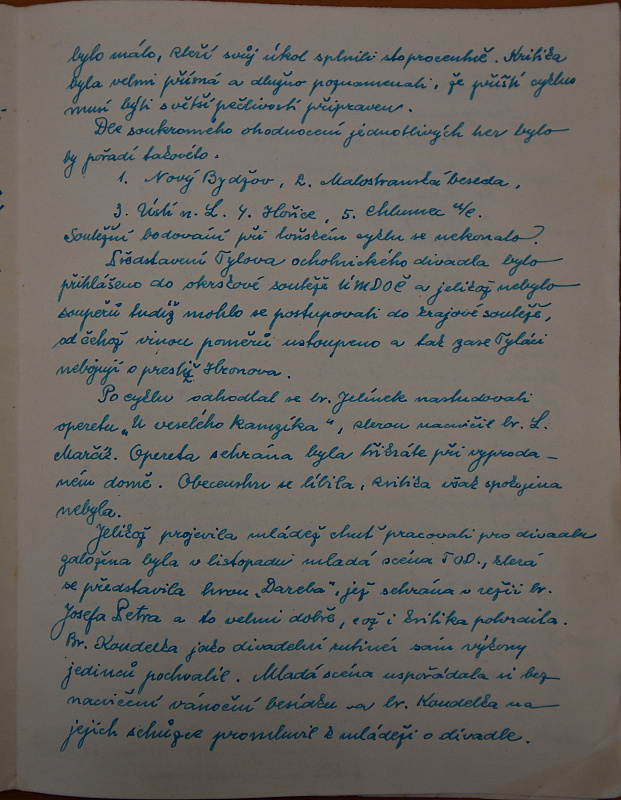 bylo málo, kteří svůj úkol splnili stoprocentně. Kritika
byla velmi přísná a dlužno poznamenati, že příští cyklus
musí býti s větší pečlivostí připraven.
Dle soukromého ohodnocení jednotlivých her bylo
by pořadí takovéto.
1. Nový Bydžov, 2. Malostranská beseda,
3. Ústí n. L. 4. Hořice, 5. Chlumec n/C.
Soutěžní bodování při loňském cyklu se nekonalo?
Představení Tylova ochotnického divadla bylo
přihlášeno do okrskové soutěže ÚMDOČ a jelikož nebylo
soupeřů tudíž mohlo se postupovati do krajové soutěže,
od čehož vinou poměrů ustoupeno a tak zase Tyláci
nebojují o prestiž Hronova.
Po cyklu odhodlal se br. Jelínek nastudovati
operetu „U veselého kamzíka“, kterou nacvičil br. L.
Mařák. Opereta sehrána byla třikráte při vyproda-
ném domě. Obecenstvu se líbila, kritika však spokojena
nebyla.
Jelikož projevila mládež chuť pracovati pro divadlo
založena byla v listopadu mladá scéna TOD., která
se představila hrou „Dareba“, jež sehrána v režii br.
Josefa Petra a to velmi dobře, což i kritika potvrdila.
Br. Koudelka jako divadelní rutinér sám výkony
jedinců pochválil. Mladá scéna uspořádala si bez
nacvičení vánoční besídku a br. Koudelka na
jejich schůzce promluvil k mládeži o divadle.